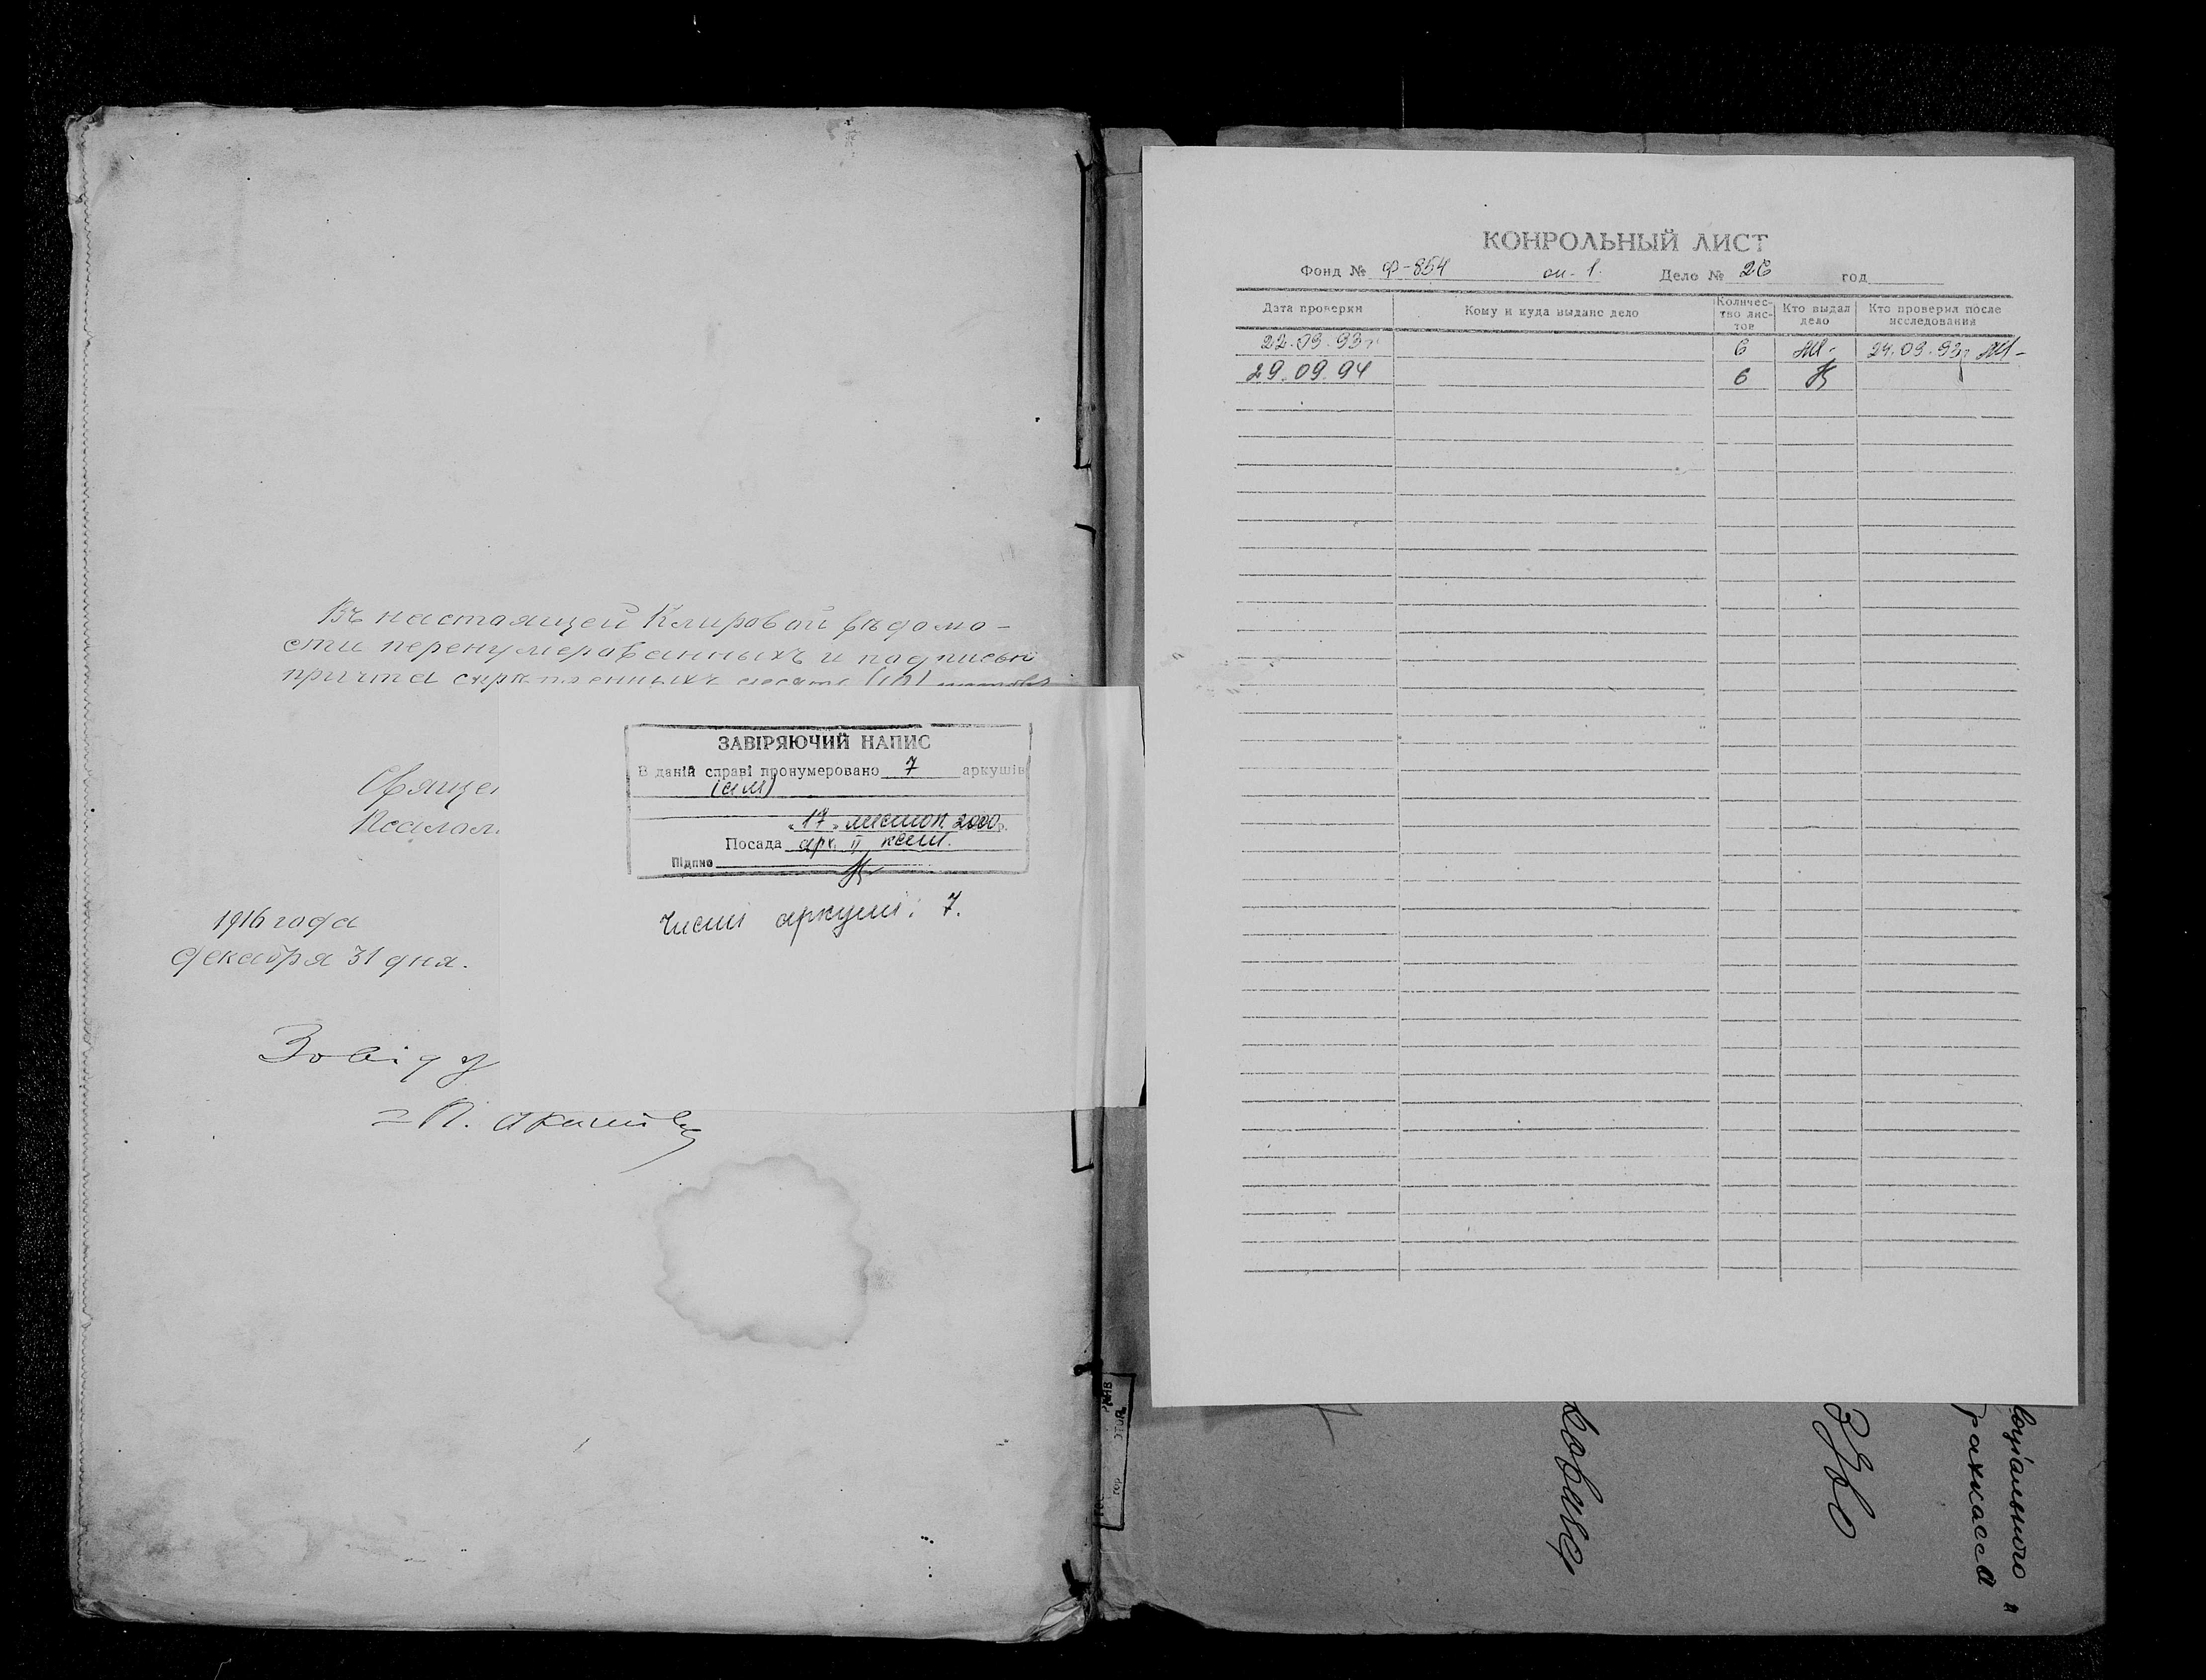 Въ настоящей Клировой вѣдомо-
сти перенумерованныхъ и подписью
причта скрѣпленныхъ десять (10) листовъ
Свящe
Псалом
1916 года
Декабря 31 дня.
Завіду
ЗАВІРЯЮЧИЙ НАПИС
В даній справі пронумеровано 7 аркушів
(сім)
"17" листоп. 2000р.
Посада арх. II кат.
Підпис
Чисті аркуші: 7.
КОНРОЛЬНЫЙ ЛИСТ
Фонд № Ф-854 оп. 1. Дело № 26 год
Дата проверки Кому и куда выдано дело Количес-тво лис-тов Кто выдал дело Кто проверил после исследования
22.09.93г 6 24.09.93г
29.09.94 6